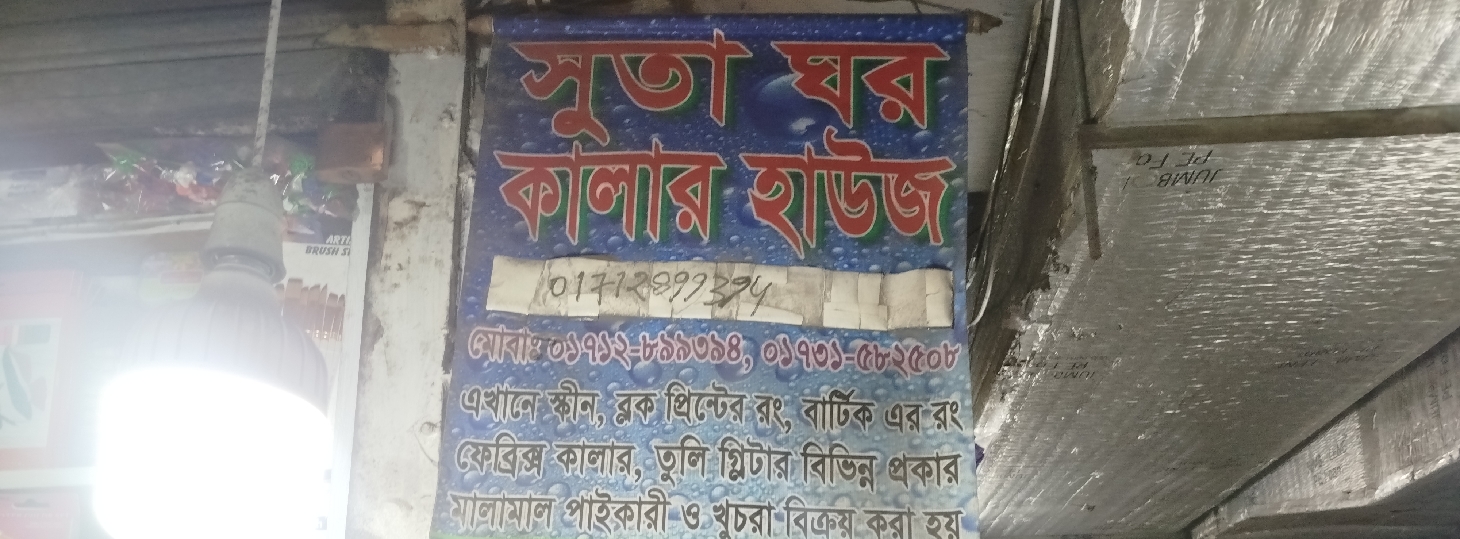 সুতা ঘর
কালার হাউজ
01712899394
মোবাঃ ০১৭১২-৮৯৯৩৯৪, ০১৭৩১-৫৮২৫০৮
এখানে স্কীন, ব্লক প্রিন্টের রং, বার্টিক এর রং
ফেব্রিক্স কালার, তুলি গ্লিটার বিভিন্ন প্রকার
মালামাল পাইকারী ও খুচরা বিক্রয় করা হয়
BRUSH
JUMB